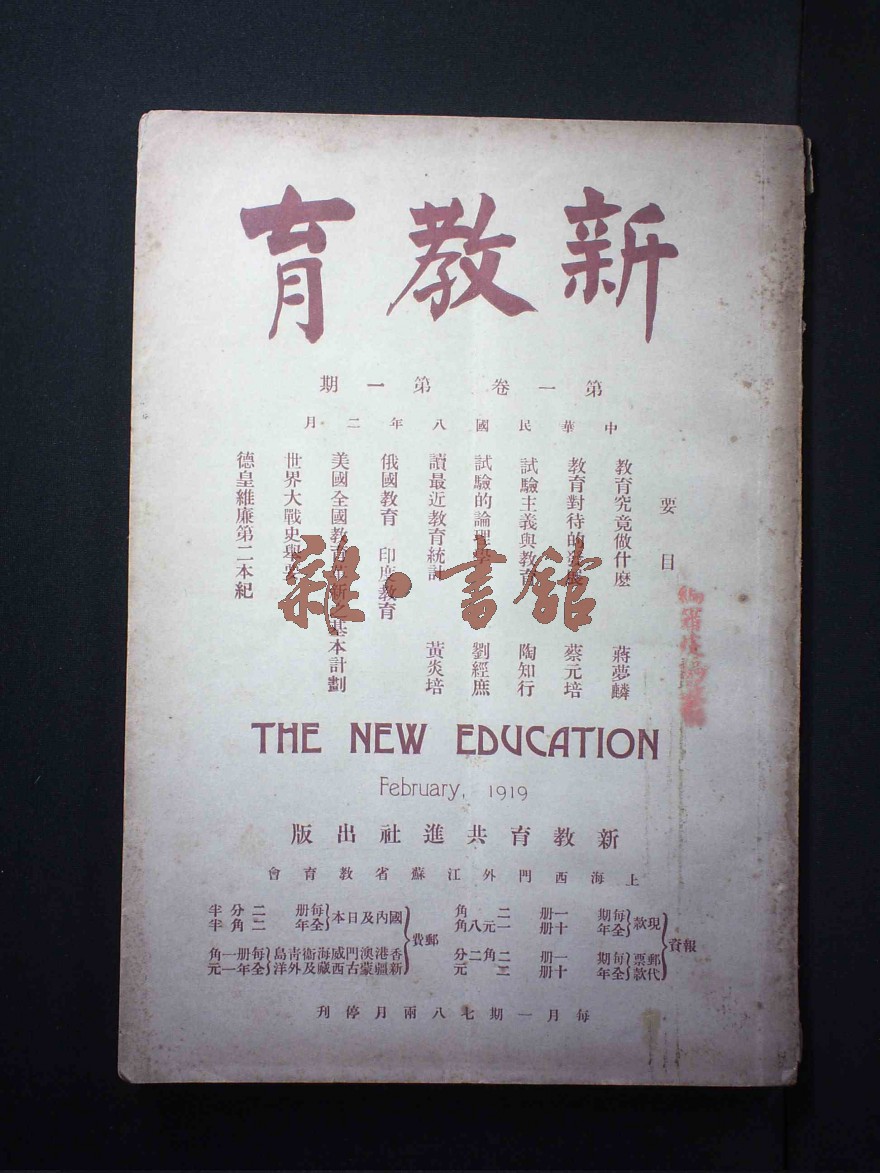 新教育
第一卷 第一期
中華民國八年二月
要目
教育究竟做什麼 蔣夢麟
教育對待的發展 蔡元培
試驗主義與教育 陶知行
試驗的論理學 劉經庶
讀最近教育統計 黃炎培
俄國教育 印度教育
美國全國教育革新之基本計劃
世界大戰史輿要
德皇維廉第二本紀
雜·書館
THE NEW EDUCATION
February, 1919
新教育共進社出版
上海西門外江蘇省教育會
報資
現款 每期一册二角
全年十册一元八角
郵票代款 每期一册二角二分
全年十册二元
郵費
國內及日本 每册二分半
全年二角半
香港澳門威海衞青島新疆蒙古西藏及外洋 每册一角
全年一元
每月一期七八兩月停刊